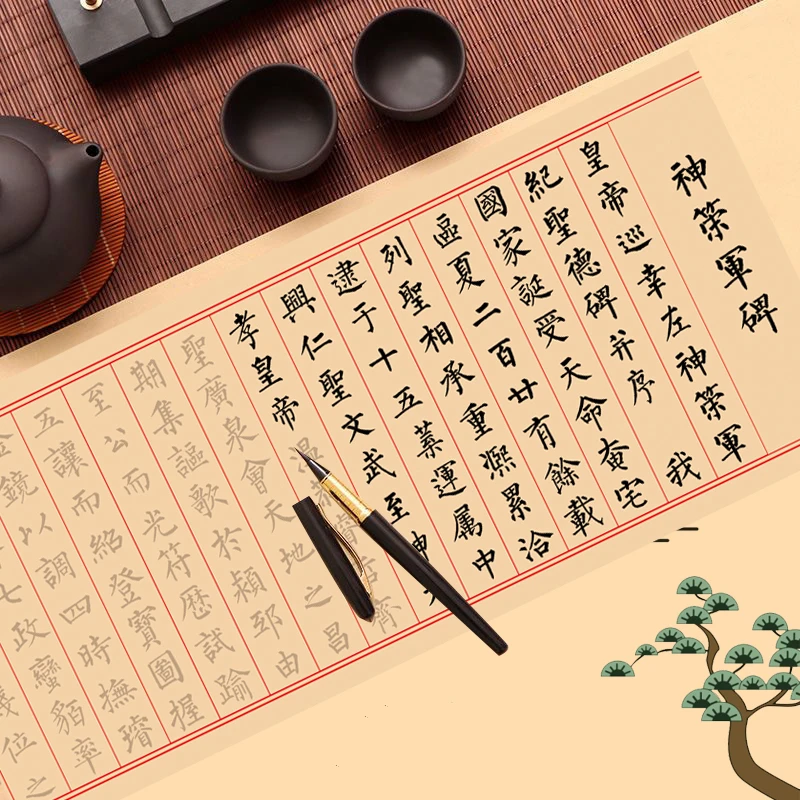 神策軍碑
皇帝巡幸左神策軍
紀聖德碑并序 我
國家誕受天命奄宅
區夏二百廿有餘載
列聖相承重熙累洽
逮于十五葉運属中
興仁聖文武至神
孝皇帝 温恭睿哲齊
聖廣泉會天地之昌
期集謳歌於潁邸由
至公而光符歷試踰
五讓而紹登寶圖握
金鏡以調四時撫璿
七政蠻貊率
位之